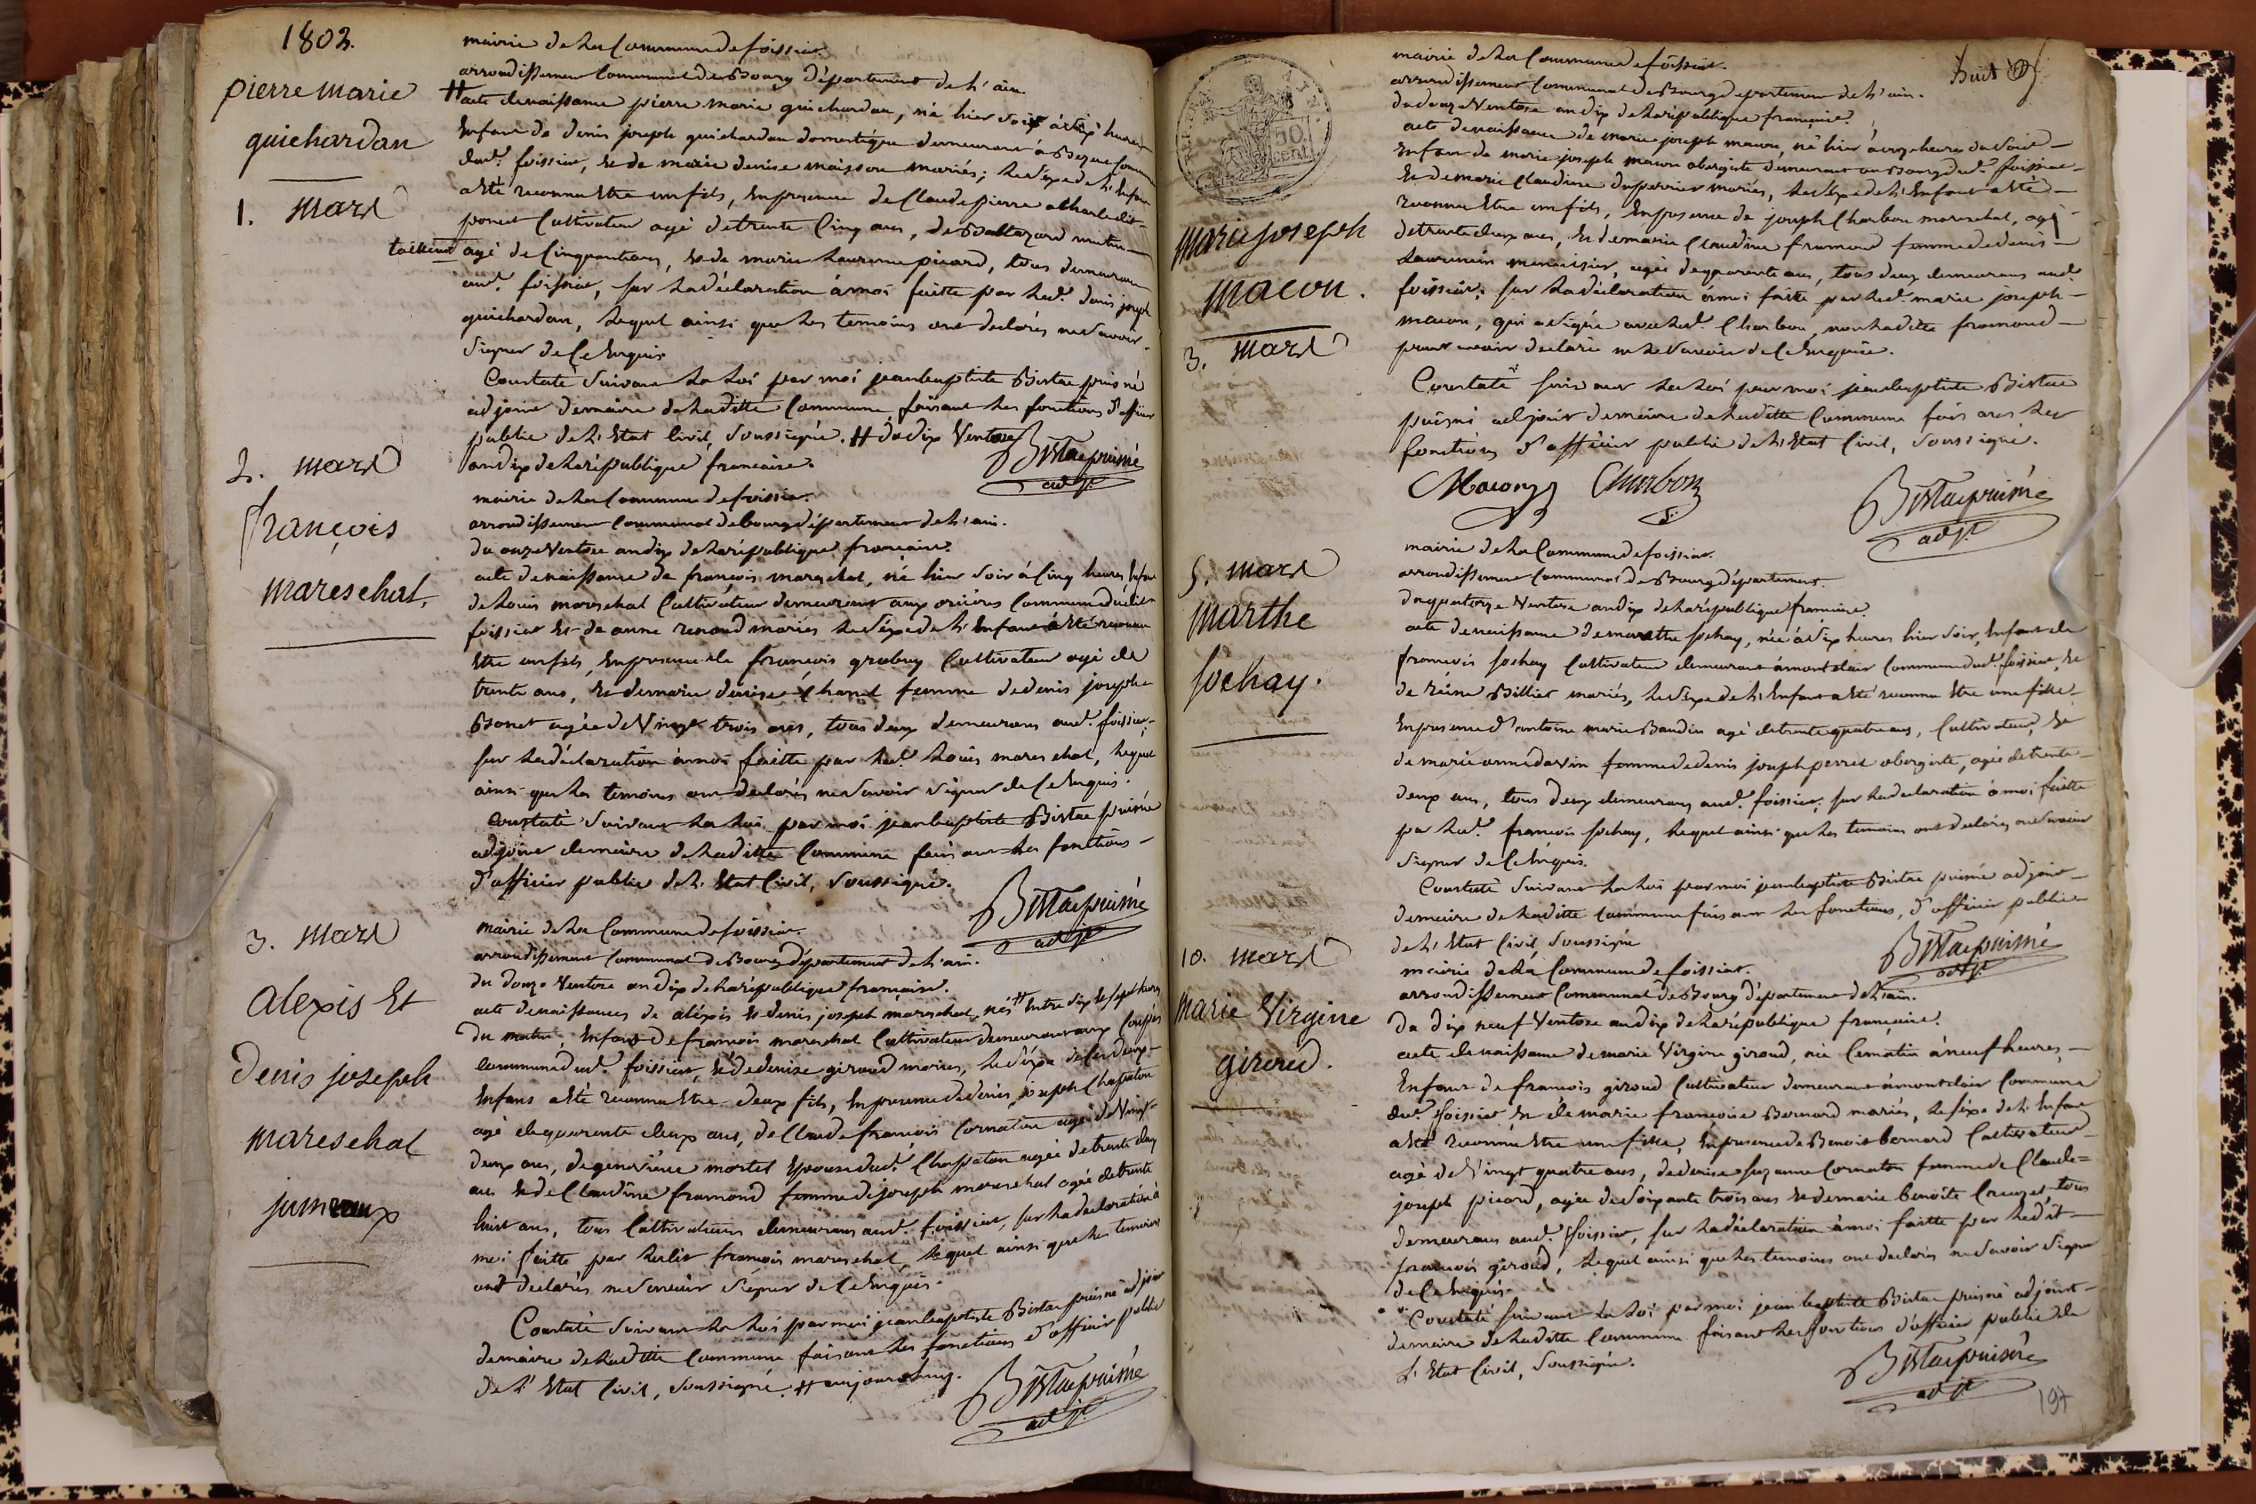 1802.
pierre marie
guichardan
1. mars
mairie de la Commune de foissiat.
arrondissement Communal de Bourg département de l'ain
# acte de naissance pierre marie guichardan, né hier soir à six heures
Enfant de denis joseph guichardan domestique demeurant à Commune
dud.t foissiat, et de marie denise maisson mariés; le sexe de l'Enfant
a été reconnu Etre un fils, En presence de Claude pierre
poncet Cultivateur agé de trente Cinq ans, de Baltazard
agé de Cinquante ans, et de marie Laurence picard, tous demeurans
aud.t foissiat, sur la déclaration à moi faitte par led.t denis joseph
guichardan, lequel ainsi que les temoins ont declarés ne savoir
signer de Ce Enquis
Constaté suivant la loi par moi jean baptiste Bistac puisné
adjoint demaire de laditte Commune, faisant les fonctions d'officier
public de l'Etat Civil, soussigné. # du dix Ventose
an dix de la république francaise.
Bistac puisné
adjt
2. mars
françois
mareschal.
mairie de la Commune de foissiat.
arrondissement Communal de bourg département de l'ain.
du onze Ventose an dix de la république française.
acte de naissance de francois mareschal, né hier soir à Cinq heures Enfant
de Louis mareschal Cultivateur demeurant aux Commune dudit
foissiat et de anne renoud mariés le sexe de l'Enfant a été reconnu
Etre un fils, En presence de francois Cultivateur agé de
trente ans, et de marie denise femme de denis joseph
Bonet agée de Vingt trois ans, tous deux demeurans aud.t foissiat,
sur la déclaration à moi faitte par led.t Louis mareschal, lequel
ainsi que les temoins ont declarés ne savoir signer de Ce Enquis.
Constaté suivant la loi par moi jean baptiste Bistac puisné
adjoint demaire de laditte Commune faisant les fonctions
d'officier public de l'Etat Civil, soussigné.
Bistac puisné
adjt
3. mars
alexis Et
denis joseph
mareschal
jumeaux
mairie de la Commune de foissiat.
arrondissement Communal de Bourg département de l'ain.
du douze Ventose an dix de la république française.
acte de naissances de aléxis et denis joseph mareschal, nés # Entre six et sept heures
du matin, Enfans de francois mareschal Cultivateur demeurant aux
commune dud.t foissiat, et de denise giroud mariés, le sexe de les deux
Enfans a été reconnu Etre deux fils, En presence de denis joseph Chapatan
agé de quarente deux ans, de Claude francois Cornaton agé de Vingt
deux ans, de genevieve mortel Epouse dud.t Chapatan agée de trente deux
ans et de Claudine framond femme de joseph mareschal agée de trente
huit ans, tous Cultivateurs demeurans aud.t foissiat, sur la déclaration à
moi faitte par ledit francois mareschal, lequel ainsi que les temoins
ont declarés ne savoir signer de Ce Enquis.
Constaté suivant la loi par moi jean baptiste Bistac puisné adjoint
demaire de laditte Commune faisant les fonctions d'officier public
de l'Etat Civil, soussigné. # aujourdhuy.
Bistac puisné
adjt
huit
50 cent.
marie joseph
macon.
3. mars
mairie de la Commune de foissiat.
arrondissement Communal de Bourg departement de l'ain.
du douze Ventose an dix de la république française.
acte de naissance de marie joseph macon, né hier à onze heures du soir
Enfant de marie joseph macon obergiste demeurant au Bourg dud.t foissiat
et de marie Claudine duperrier mariés, le sexe de l'Enfant a été
reconnu Etre un fils, En presence de joseph Charbon mareschal, agé
de trente deux ans, et de marie Claudine framond femme de denis
menuisier, agée de quarente ans, tous deux demeurans aud.t
foissiat; sur la déclaration à moi faitte par led.t marie joseph
macon, qui a signé avec led.t Charbon, non laditte framond
pour avoir declaré ne le savoir de Ce Enquise.
Constaté suivant la loi par moi jean baptiste Bistac
puisné adjoint demaire de laditte Commune faisant les
fonctions d'officier public de l'Etat Civil, soussigné.
Macon Charbon
Bistac puisné
adjt
5. mars
marthe
sochay.
mairie de la Commune de foissiat.
arrondissement Communal de Bourg département.
du quatorze Ventose an dix de la république francaise.
acte de naissance de marthe sochay, née à dix heures hier soir, Enfant de
francois sochay Cultivateur demeurant à montclair Commune dud.t foissiat, et
de reine Billiet mariés, le sexe de l'Enfant a été reconnu Etre une fille
En presence d'antoine marie Baudin agé de trente quatre ans, Cultivateur, et
de marie anne darvin femme de denis joseph perret obergiste, agée de trente
deux ans, tous deux demeurans aud.t foissiat, sur la declaration à moi faitte
par led.t francois sochay, lequel ainsi que les temoins ont declarés ne savoir
signer de Ce Enquis.
Constaté suivant la loi par moi jean baptiste Bistac puisné adjoint
demaire de laditte Commune faisant les fonctions, d'officier public
de l'Etat Civil, soussigné
Bistac puisné
adjt
10. mars
marie Virginie
giroud.
mairie de la Commune de foissiat.
arrondissement Communal de Bourg département de l'ain.
du dix neuf Ventose an dix de la république française.
acte de naissance de marie Virginie giroud, née Ce matin à neuf heures,
Enfant de francois giroud Cultivateur demeurant à montclair Commune
dud.t foissiat, et de marie françoise Bernard mariés, le sexe de l'Enfant
a été reconnu Etre une fille, En presence de Benoit bernard Cultivateur
agé de Vingt quatre ans, de denise suzanne Cornaton femme de Claude
joseph picard, agée de soixante trois ans et de marie benoite Creuzet, tous
demeurans aud.t foissiat, sur la déclaration à moi faitte par ledit
francois giroud, lequel ainsi que les temoins ont declarés ne savoir signer
de Ce Enquis.
Constaté suivant la loi par moi jean baptiste Bistac puisné adjoint
demaire de laditte Commune faisant les fonctions d'officier public de
l'Etat Civil, soussigné.
Bistac puisné
adjt
197